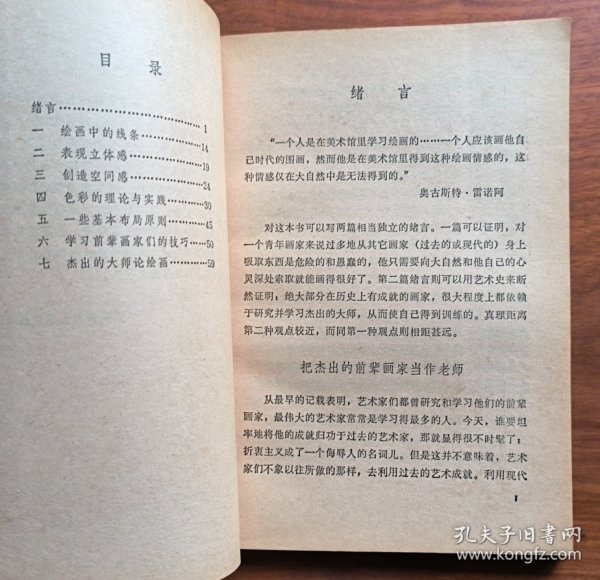 目录
绪言……1
一 绘画中的线条……14
二 表现立体感……19
三 创造空间感……24
四 色彩的理论与实践……30
五 一些基本布局原则……45
六 学习前辈画家们的技巧……50
七 杰出的大师论绘画……59
绪言
“一个人是在美术馆里学习绘画的……一个人应该画他自
己时代的图画，然而他是在美术馆里得到这种绘画情感的，这
种情感仅在大自然中是无法得到的。”
奥古斯特·雷诺阿
对这本书可以写两篇相当独立的绪言。一篇可以证明，对
一个青年画家来说过多地从其它画家（过去的或现代的）身上
吸取东西是危险的和愚蠢的，他只需要向大自然和他自己的心
灵深处索取就能画得很好了。第二篇绪言则可以用艺术史来断
然证明：绝大部分在历史上有成就的画家，很大程度上都依赖
于研究并学习杰出的大师，从而使自己得到训练的。真理距离
第二种观点较近，而同第一种观点则相距甚远。
把杰出的前辈画家当作老师
从最早的记载表明，艺术家们都曾研究和学习他们的前辈
画家，最伟大的艺术家常常是学习得最多的人。今天，谁要坦
率地将他的成就归功于过去的艺术家，那就显得很不时髦了；
折衷主义成了一个侮辱人的名词儿。但是这并不意味着，艺术
家们不象以往所做的那样，去利用过去的艺术成就。利用现代
1
孔夫子旧书网
www.kongfz.com